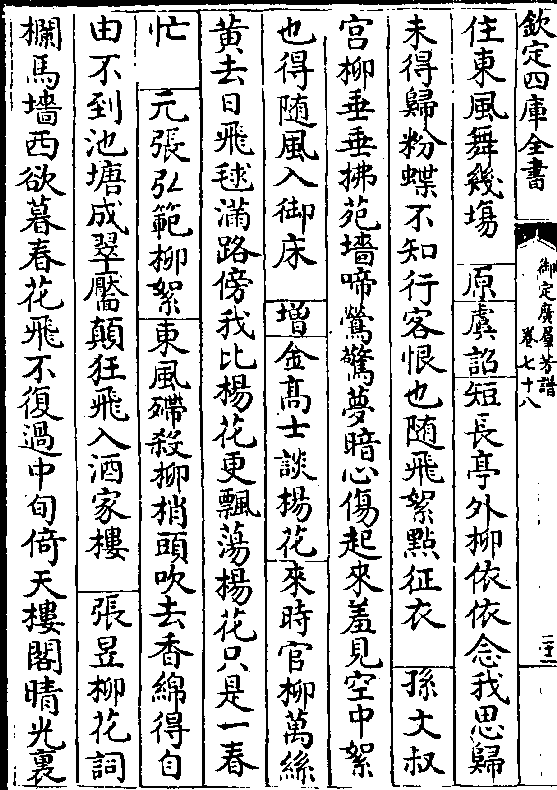 欽定四庫全書
御定廣羣芳譜
卷七十八
住東風舞幾塲　原虞韶短長亭外柳依依念我思歸
未得歸粉蝶不知行客恨也随飛絮點征衣　孫大叔
宫柳垂垂拂苑墻啼鶯驚夢暗心傷起來羞見空中絮
也得随風入御床　增金髙士談楊花來時官柳萬絲
黄去日飛毬滿路傍我比楊花更飄蕩楊花只是一春
忙　元張弘範柳絮東風殢殺柳梢頭吹去香綿得自
由不到池塘成翠靨顛狂飛入酒家樓　張昱柳花詞
欄馬墻西欲暮春花飛不復過中旬倚天樓閣晴光裏